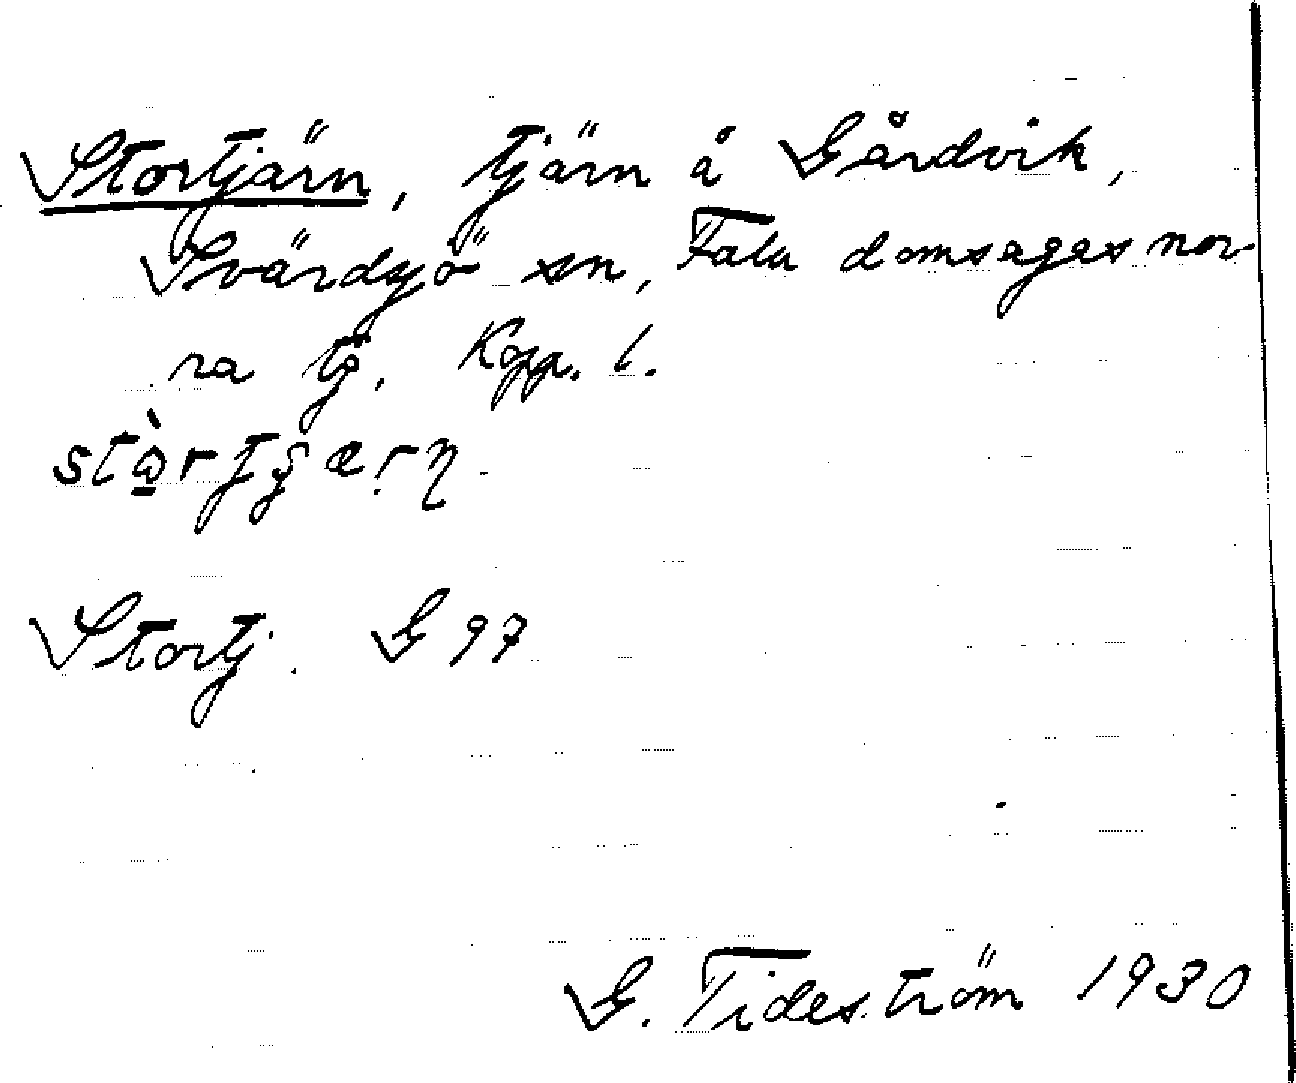 Stortjärn, tjärn å Gårdvik,
Svärdsjö sn, Falu domsagas nor-
ra tg, Kopp. l.
Stortj. G 97
G. Tideström 1930